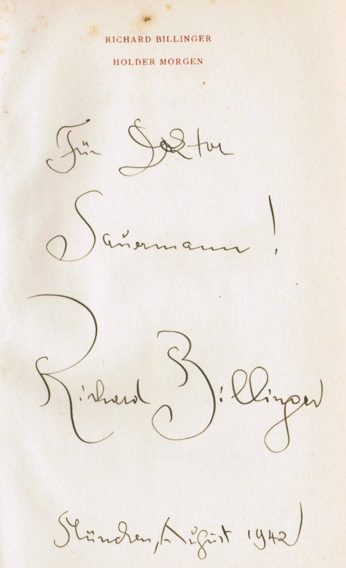 RICHARD BILLINGER
HOLDER MORGEN
Für Doktor
Sauermann!
Richard Billinger
München, August 1942